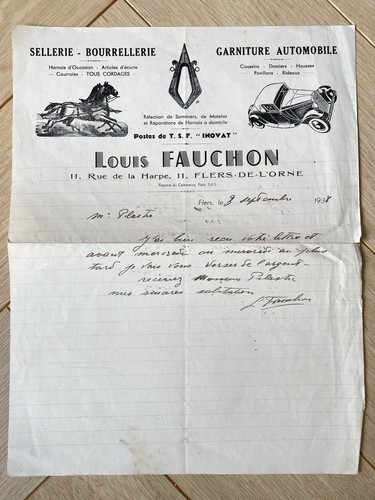 SELLERIE - BOURRELLERIE
GARNITURE AUTOMOBILE
Harnais d'Occasion - Articles d'écurie
— Courroies - TOUS CORDAGES
Coussins - Dossiers - Housses
Pavillons - Rideaux
Réfection de Sommiers, de Matelas
et Réparations de Harnais à domicile
Postes de T. S. F. "INOVAT"
LOUIS FAUCHON
11, Rue de la Harpe, 11, FLERS-DE-L'ORNE
Registre du Commerce, Flers
Flers, le 3 septembre 1938
Mr
J'ai bien reçu votre letre et
avant mercredi ou au plus
tard je vais vous verser de l'argent
recevez Monsieur
mes salutation
L Fauchon